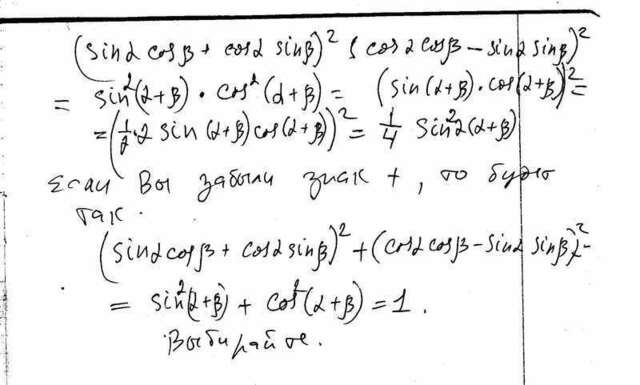 (sinα cosβ + cosα sinβ)² (cosα cosβ − sinα sinβ)²
= sin²(α+β) · cos²(α+β) = (sin(α+β)·cos(α+β))² =
= (1/2·2 sin(α+β)cos(α+β))² = 1/4 sin²2(α+β)
Если Вы забыли знак +, то будет
так.
(sinα cosβ + cosα sinβ)² + (cosα cosβ − sinα sinβ)² =
= sin²(α+β) + cos²(α+β) = 1.
Выбирайте.